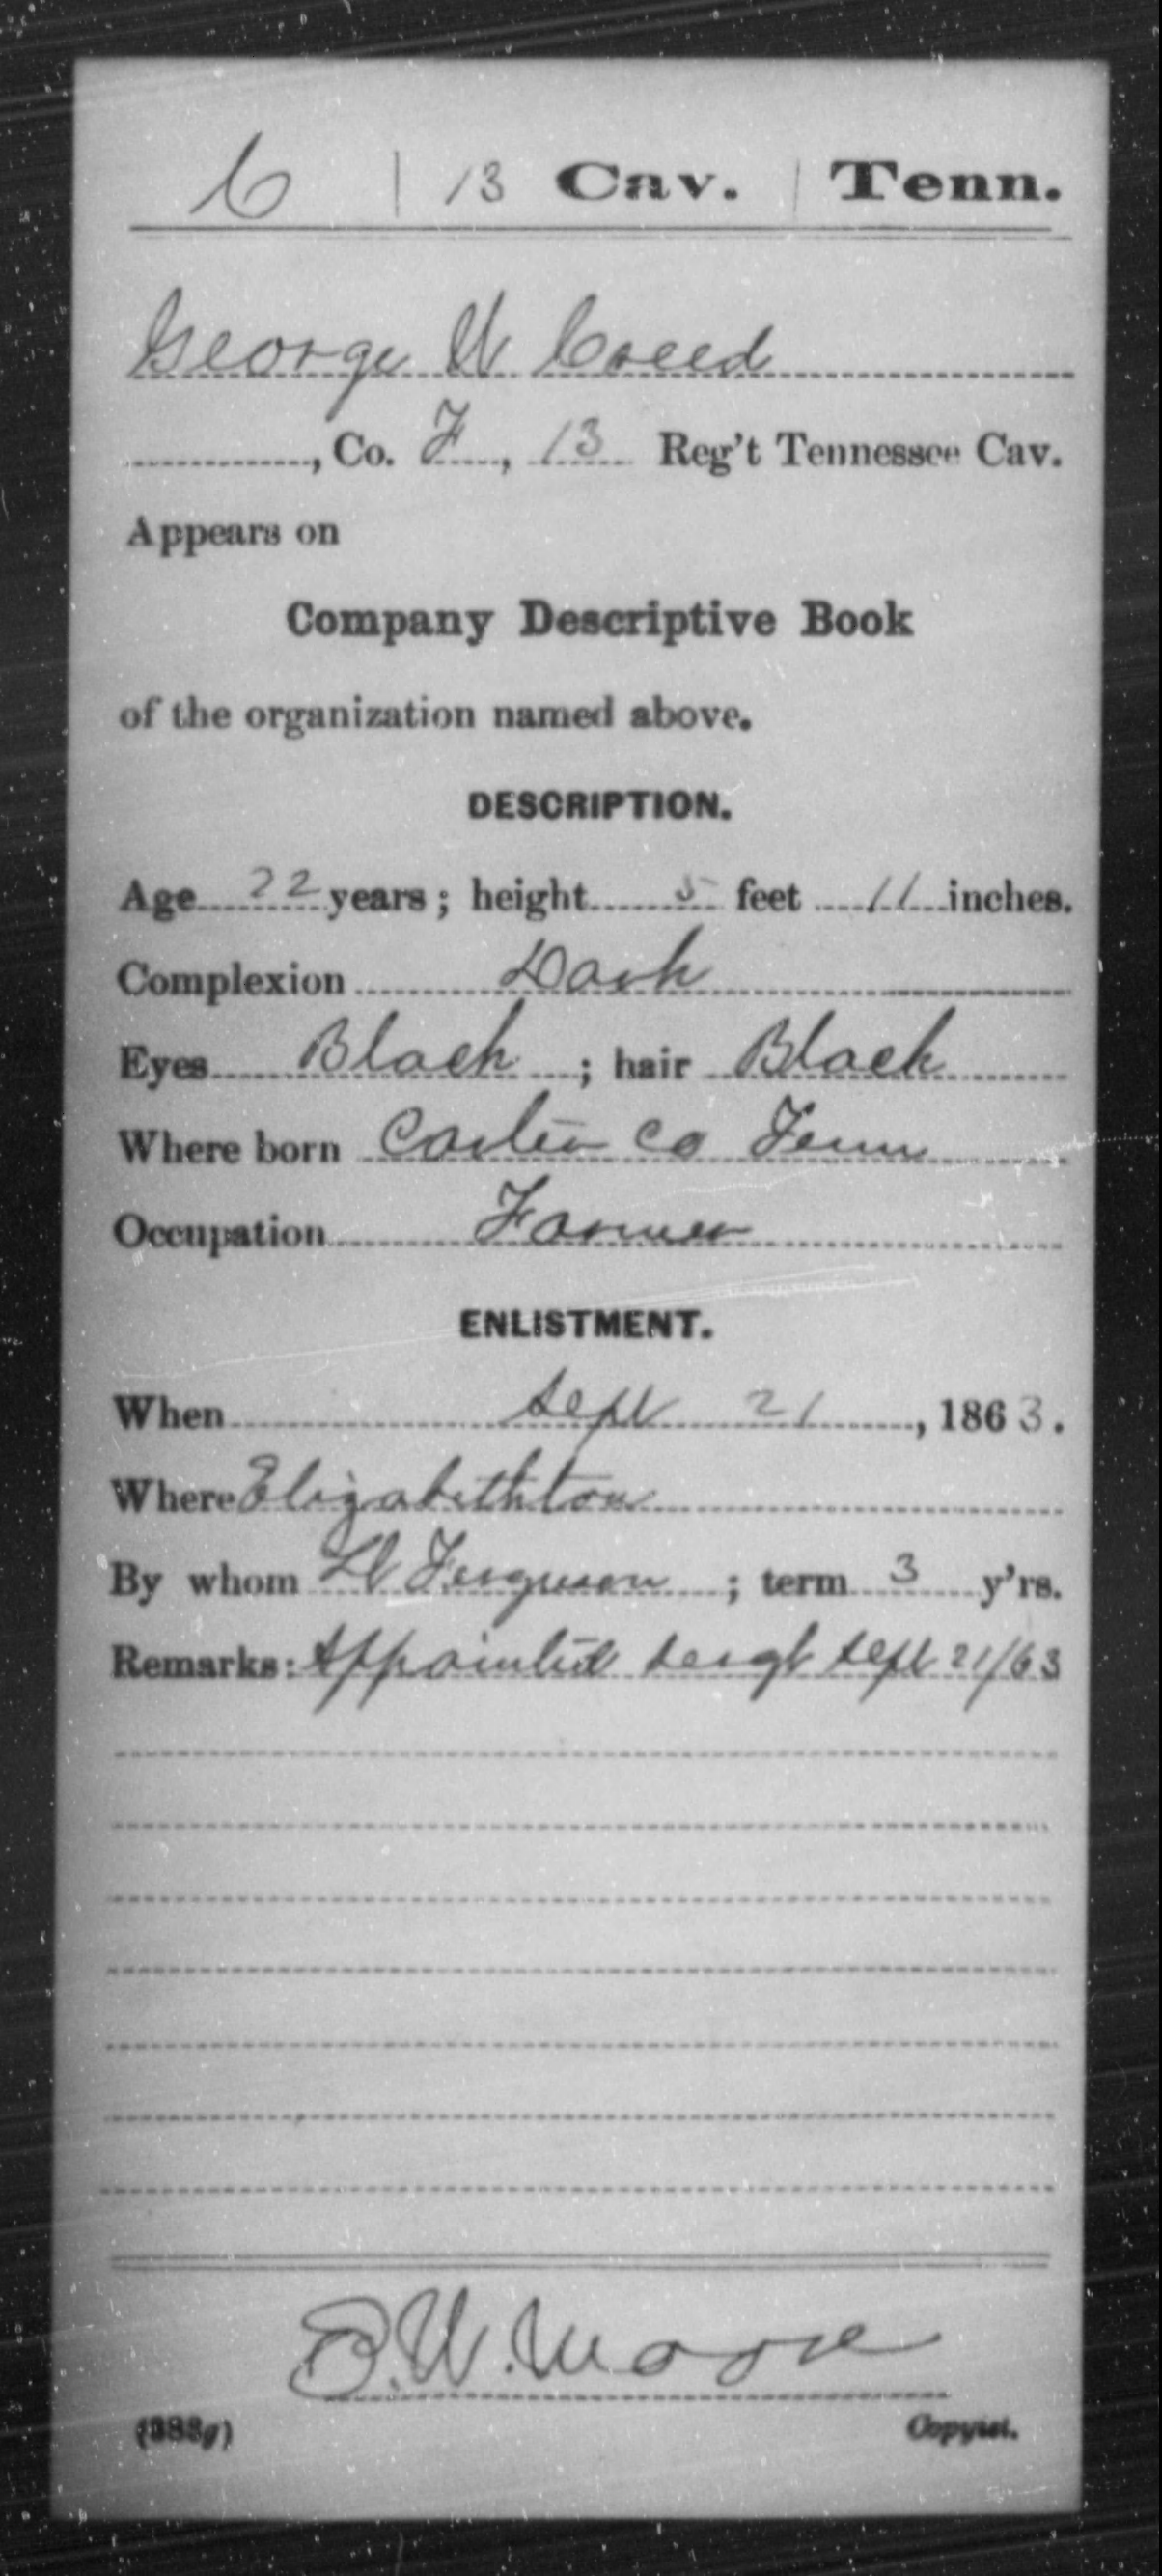 C | 13 Cav. | Tenn.
George W Creed
, Co. F, 13 Reg't Tennessee Cav.
Appears on
Company Descriptive Book
of the organization named above.
DESCRIPTION.
Age 22 years; height 5 feet 11 inches.
Complexion Dark
Eyes Black; hair Black
Where born Carter Co Tenn
Occupation Farmer
ENLISTMENT.
When Sept 21, 1863.
Where Elizabethton
By whom Ferguson; term 3 y'rs.
Remarks: Appointed Sergt Sept 21/63
B. W. Moore
(383g) Copyist.